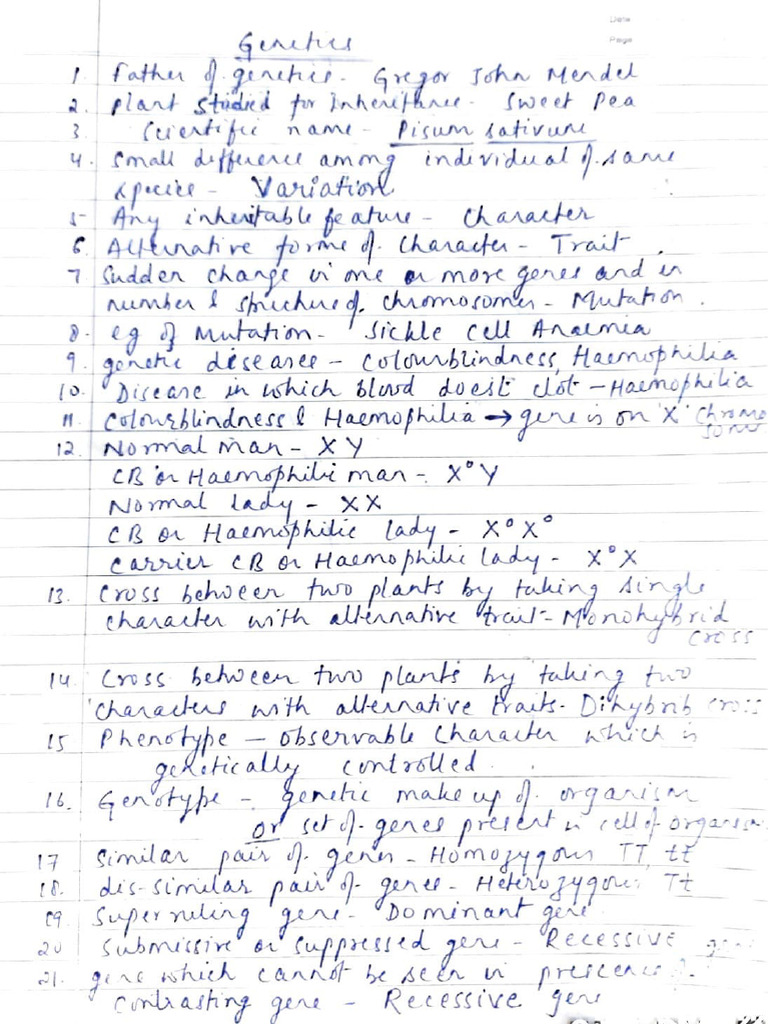 Date
Page
Genetics
1. Father of genetics - Gregor John Mendel
2. Plant studied for Inheritance - Sweet Pea
3 Scientific name - Pisum sativum
4. Small difference among individual of same
species - Variation
5- Any inheritable feature - Character
6. Alternative forms of Character - Trait
7. Sudden change in one or more genes and in
number & structure of chromosomes - Mutation.
8. eg of Mutation - Sickle Cell Anaemia
9. genetic diseases - Colourblindness, Haemophilia
10. Disease in which blood doest clot - Haemophilia
11. Colourblindness & Haemophilia → gene is on 'X' Chromo
some
12. Normal man - XY
CB or Haemophilic man - X°Y
Normal lady - XX
CB or Haemophilic lady - X°X°
Carrier CB or Haemophilic lady - X°X
13. Cross between two plants by taking single
character with alternative trait - Monohybrid
Cross
14. Cross between two plants by taking two
characters with alternative traits - Dihybrib Cross
15 Phenotype - observable Character which is
genetically controlled.
16. Genotype - genetic make up of organism
or set of genes present in cell of organism
17 Similar pair of genes - Homozygous TT, tt
18. dis-similar pair of genes - Heterozygous Tt
19. Superruling gene - Dominant gene
20 Submissive or suppressed gene - Recessive gene
21. gene which cannot be seen in prescence of
contrasting gene - Recessive gene